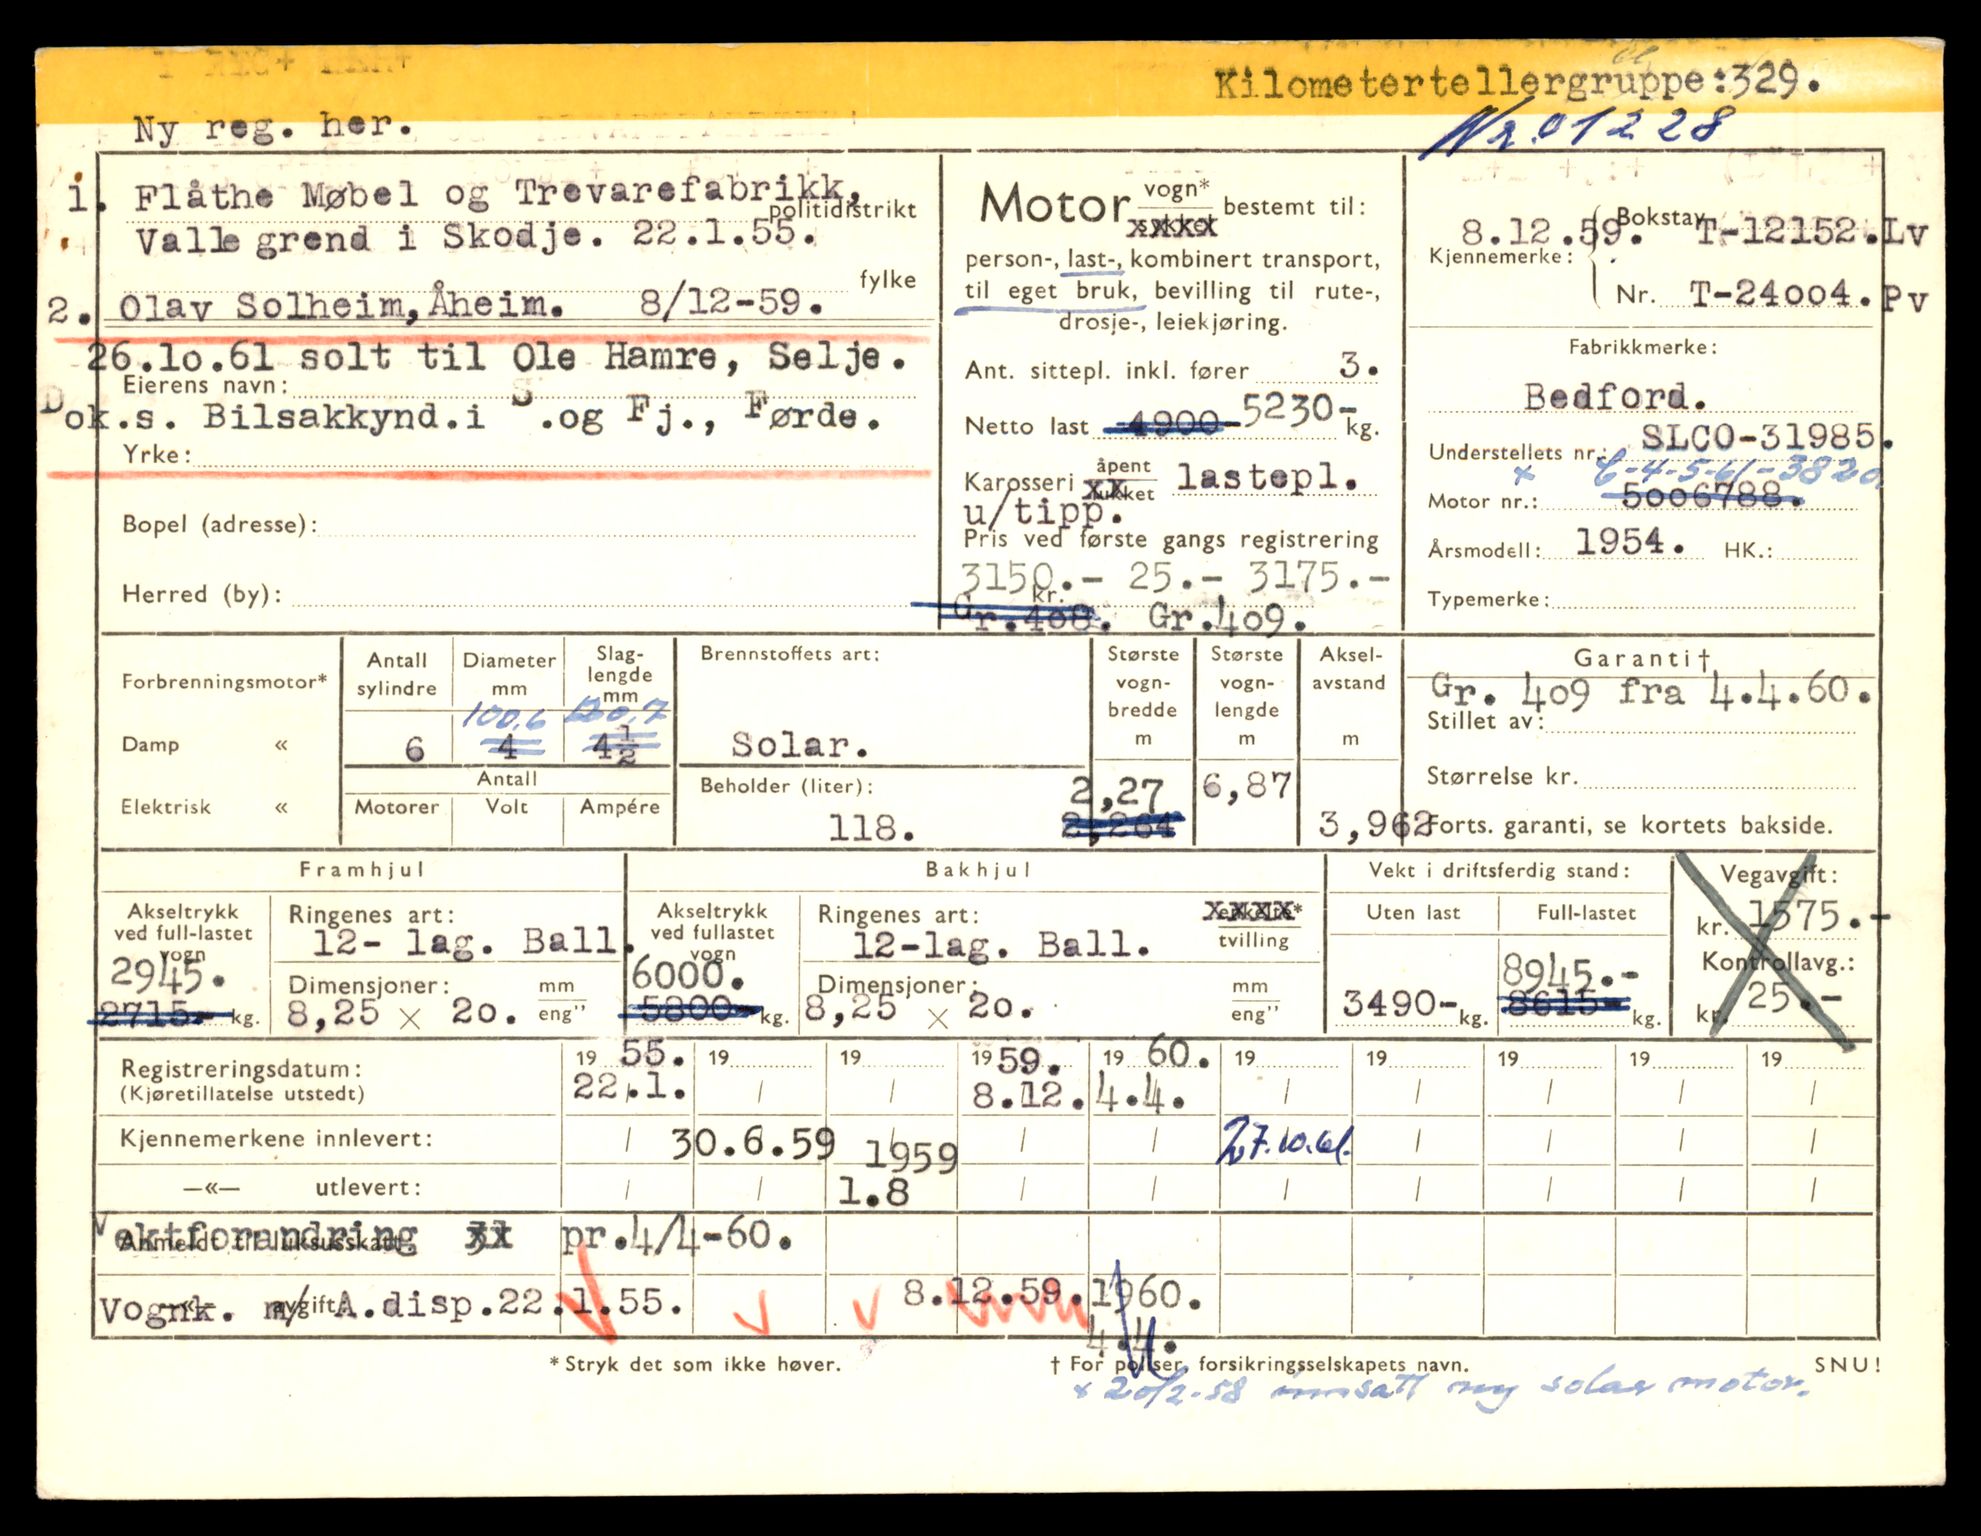 Kilometertellergruppe:329.
Ny reg. her.
Nr. 01228
1. Flåthe Møbel og Trevarefabrikk,
politidistrikt
Valle grend i Skodje. 22.1.55.
fylke
2. Olav Solheim, Åheim. 8/12-59.
26.10.61 solt til Ole Hamre, Selje.
Eierens navn:
Dok.s. Bilsakkynd.i S.og Fj., Førde.
Yrke:
Bopel (adresse):
Herred (by):
Motor vogn* bestemt til:
sykkel
person-, last-, kombinert transport,
til eget bruk, bevilling til rute-,
drosje-, leiekjøring.
Ant. sittepl. inkl. fører 3.
Netto last 4900- 5230- kg.
Karosseri åpent lukket lastepl.
u/tipp.
Pris ved første gangs registrering
3150.- 25.- 3175.-
kr.
Gr.408. Gr.409.
8.12.59. Bokstav T-12152.Lv
Kjennemerke:
Nr. T-24004.Pv
Fabrikkmerke:
Bedford.
Understellets nr.: SLCO-31985.
x 6-4-5-61-3820.
Motor nr.: 5006788.
Årsmodell: 1954. HK.:
Typemerke:
Forbrenningsmotor*
Damp «
Elektrisk «
Antall sylindre
Diameter mm
Slag-lengde mm
100,6 120,7
6 4 4 1/2
Antall
Motorer Volt Ampére
Brennstoffets art:
Solar.
Beholder (liter):
118.
Største vogn-bredde m
2,27
2,264
Største vogn-lengde m
6,87
Aksel-avstand m
3,962
Garanti†
Gr. 409 fra 4.4.60.
Stillet av:
Størrelse kr.
Forts. garanti, se kortets bakside.
Framhjul
Akseltrykk ved full-lastet vogn
2945.
2715- kg.
Ringenes art:
12- lag. Ball.
Dimensjoner: mm eng"
8,25 × 20.
Bakhjul
Akseltrykk ved fullastet vogn
6000.
5800- kg.
Ringenes art: enkelte* tvilling
12-lag. Ball.
Dimensjoner: mm eng"
8,25 × 20.
Vekt i driftsferdig stand:
Uten last Full-lastet
8945.-
3490- kg. 8615- kg.
Vegavgift:
kr. 1575.-
Kontrollavg.:
kr. 25.-
Registreringsdatum: 19 55. 19 19 19 59. 19 60. 19 19 19 19 19
(Kjøretillatelse utstedt) 22.1. / / 8.12. 4.4. / / / / /
Kjennemerkene innlevert: / 30.6.59 1959 / / 27.10.61. / / / /
—«— utlevert: / / 1.8 / / / / / / /
Anmeldt til luksusskatt
Vektforandring pr.4/4-60.
—«— avgift
Vognk. m/ A.disp.22.1.55. 8.12.59. 1960.
4.4.
* Stryk det som ikke høver.
† For poliser, forsikringsselskapets navn.
SNU!
x 20/2-58 innsatt ny solar motor.